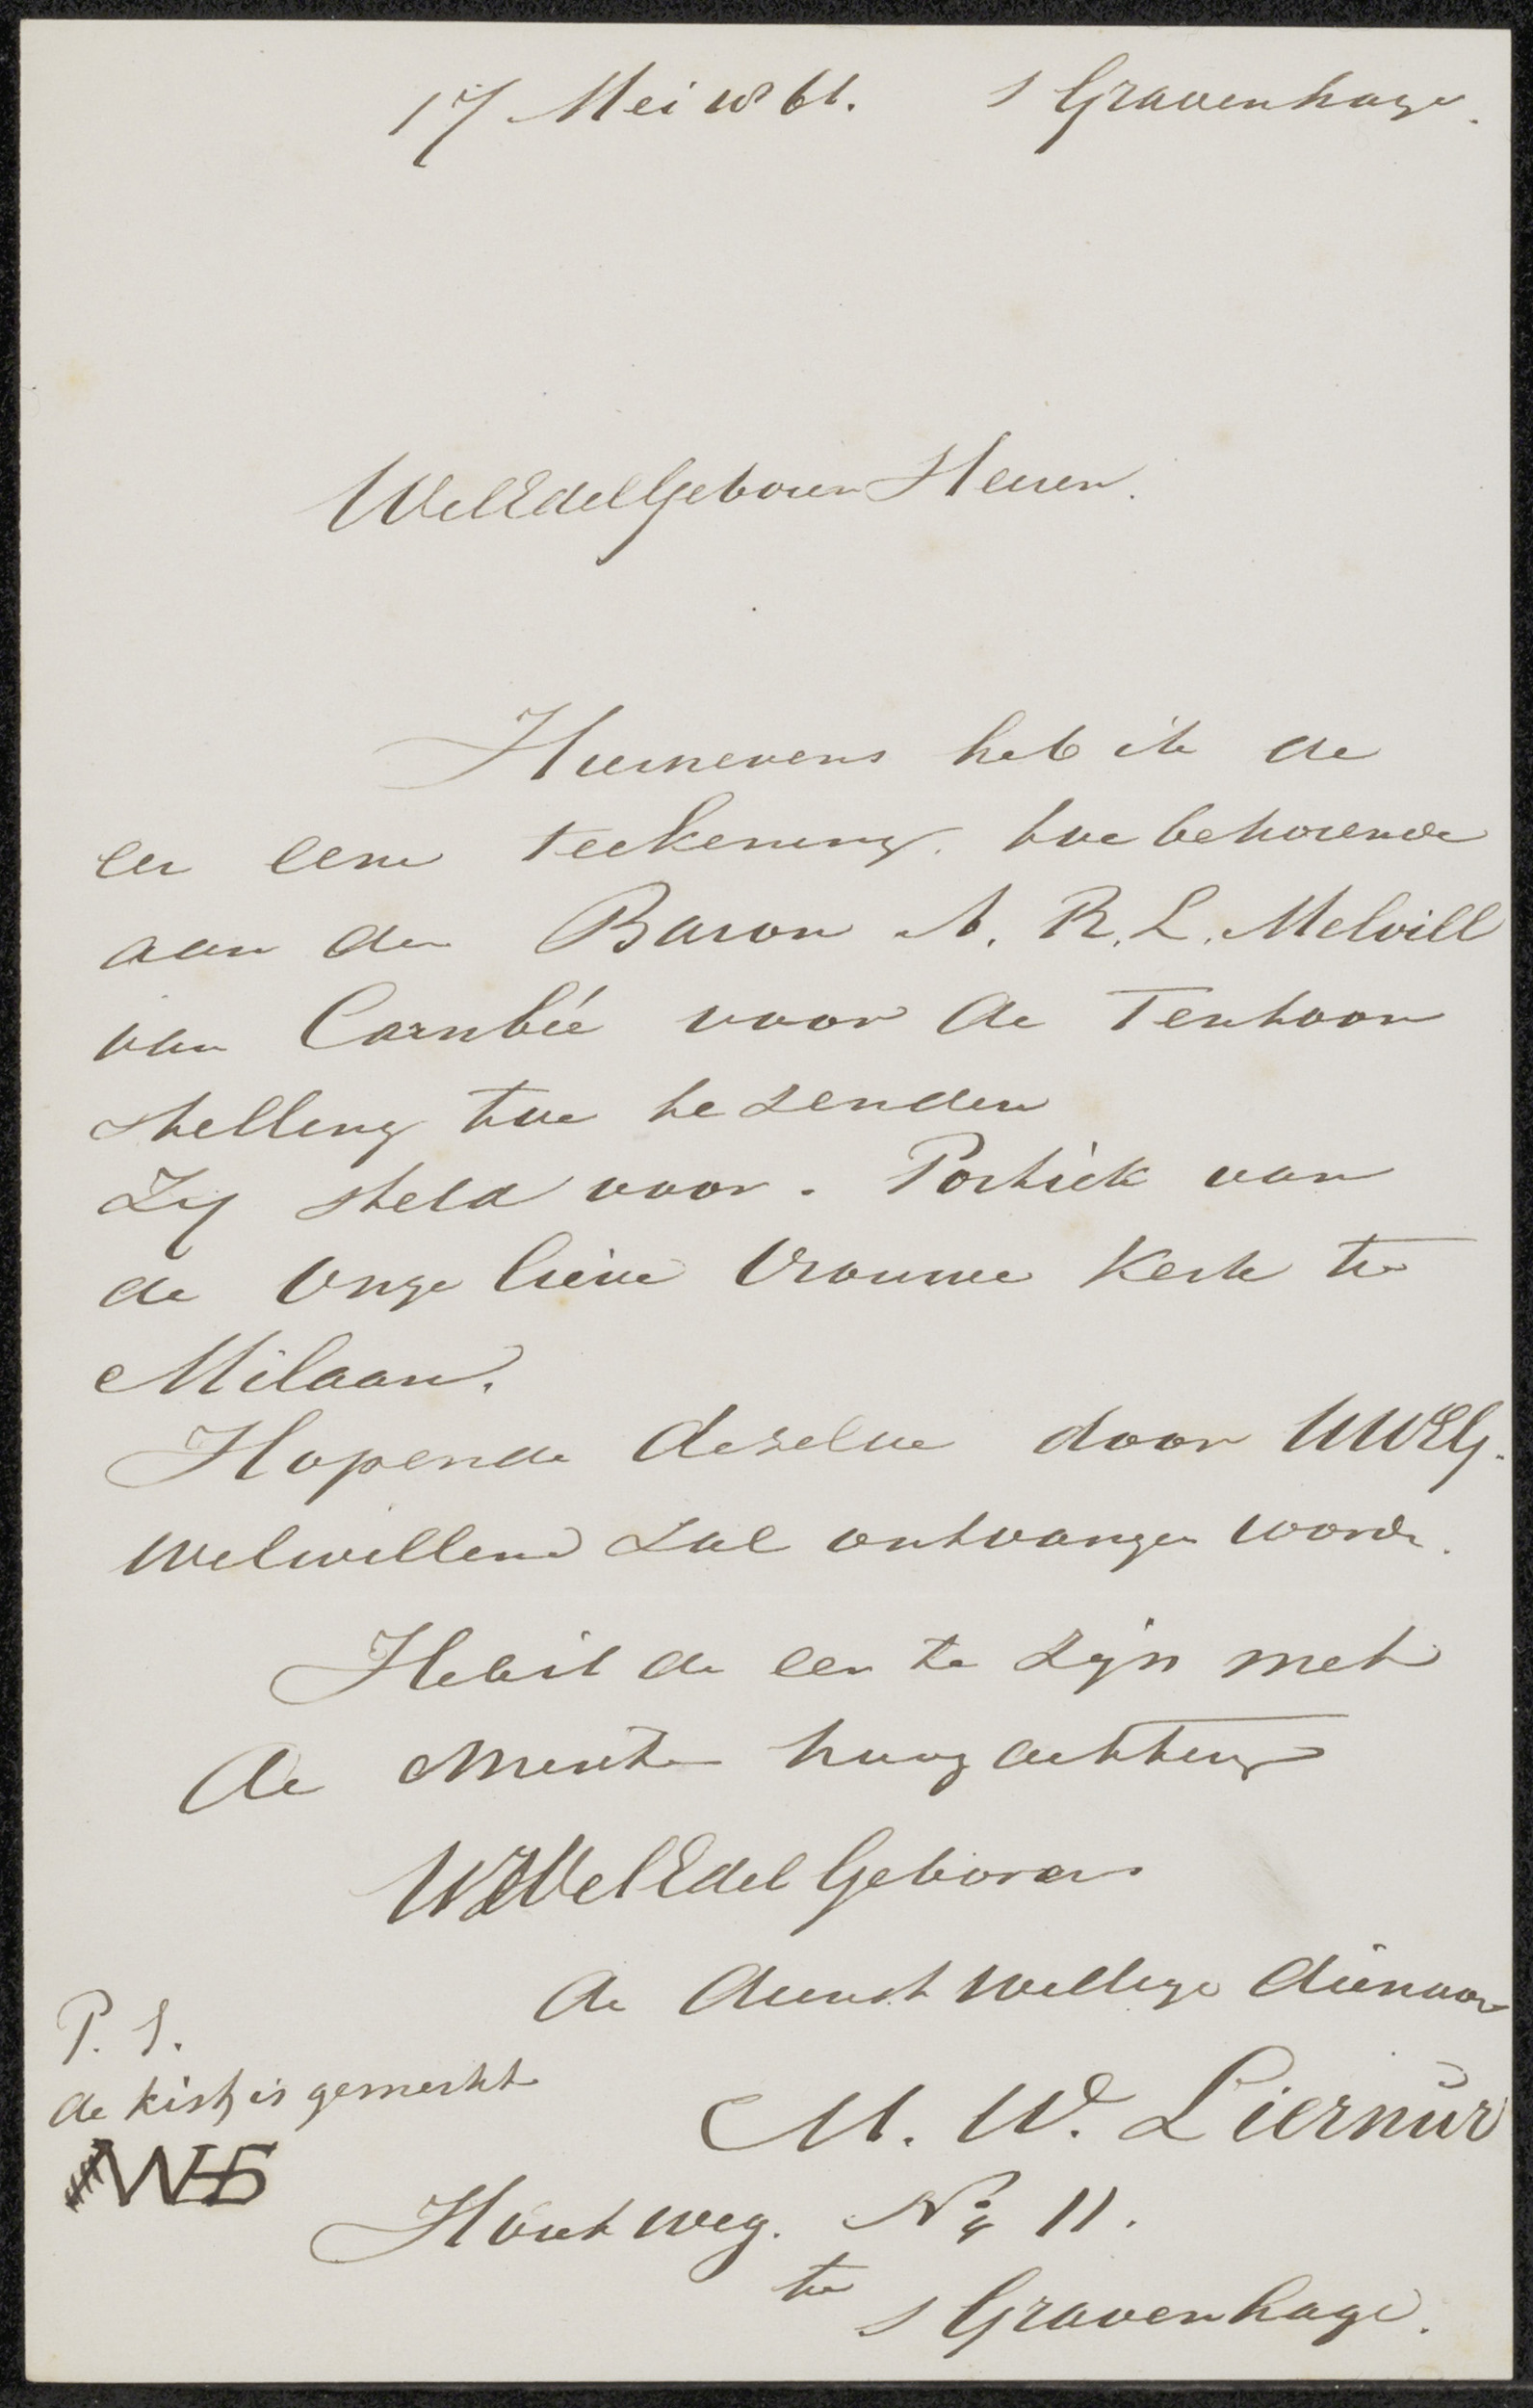 17 Mei 1861. s Gravenhage.
WelEdelGeboren Heeren.
Hiernevens heb ik de
eer eene teekening. toe behorende
aan den Baron A. R. L. Melvill
van Carnbée voor de Tentoon
stelling toe te zenden
Zij steld voor. Portiek van
de Onze lieve Vrouwe Kerk te
Milaan.
Hopende dezelve door UWEG.
welwillend zal ontvangen worden.
Heb ik de eer te zijn met
de meeste hoog achting
UWelEdel Geboren
de dienst willige dienaar
P. S.
de kist is gemerkt
WHS
M. W. Liernur
Hout weg. No 11.
te s Gravenhage.